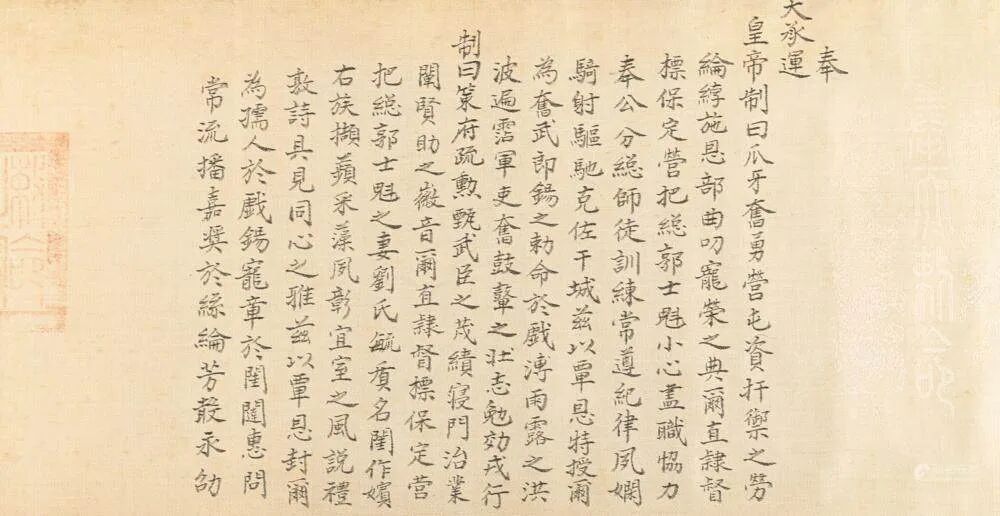 奉
天承運
皇帝制曰爪牙奮勇營屯資扞禦之勞
綸綍施恩部曲叨寵榮之典爾直隸督
標保定營把總郭士魁小心盡職協力
奉公分總師徒訓練常遵紀律夙嫻
騎射驅馳克佐干城茲以覃恩特授爾
為奮武郎錫之勅命於戲溥雨露之洪
波遍霑軍吏奮鼓鼙之壯志勉効戎行
制曰策府疏勲甄武臣之茂績寢門治業
闡賢助之徽音爾直隸督標保定營
把總郭士魁之妻劉氏毓質名閨作嬪
右族擷蘋采藻夙彰宜室之風說禮
敦詩具見同心之雅茲以覃恩封爾
為孺人於戲錫寵章於閨闥惠問
常流播嘉奨於絲綸芳聲永劭